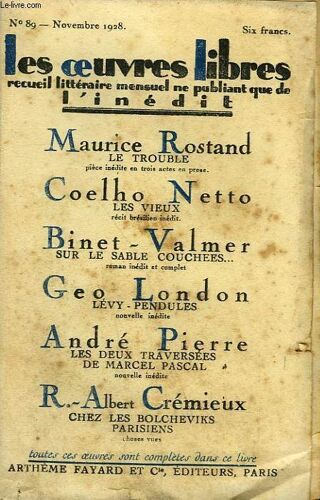 le-livre.com
Nº 89 — Novembre 1928.
Six francs.
les œuvres libres
recueil littéraire mensuel ne publiant que de
l'inédit
Maurice Rostand
LE TROUBLE
pièce inédite en trois actes en prose.
Coelho Netto
LES VIEUX
récit brésilien inédit.
Binet-Valmer
SUR LE SABLE COUCHEES...
roman inédit et complet
Geo London
LÉVY-PENDULES
nouvelle inédite
André Pierre
LES DEUX TRAVERSÉES
DE MARCEL PASCAL
nouvelle inédite
R.-Albert Crémieux
CHEZ LES BOLCHEVIKS
PARISIENS
choses vues
toutes ces œuvres sont complètes dans ce livre
ARTHÈME FAYARD ET Cie, ÉDITEURS, PARIS